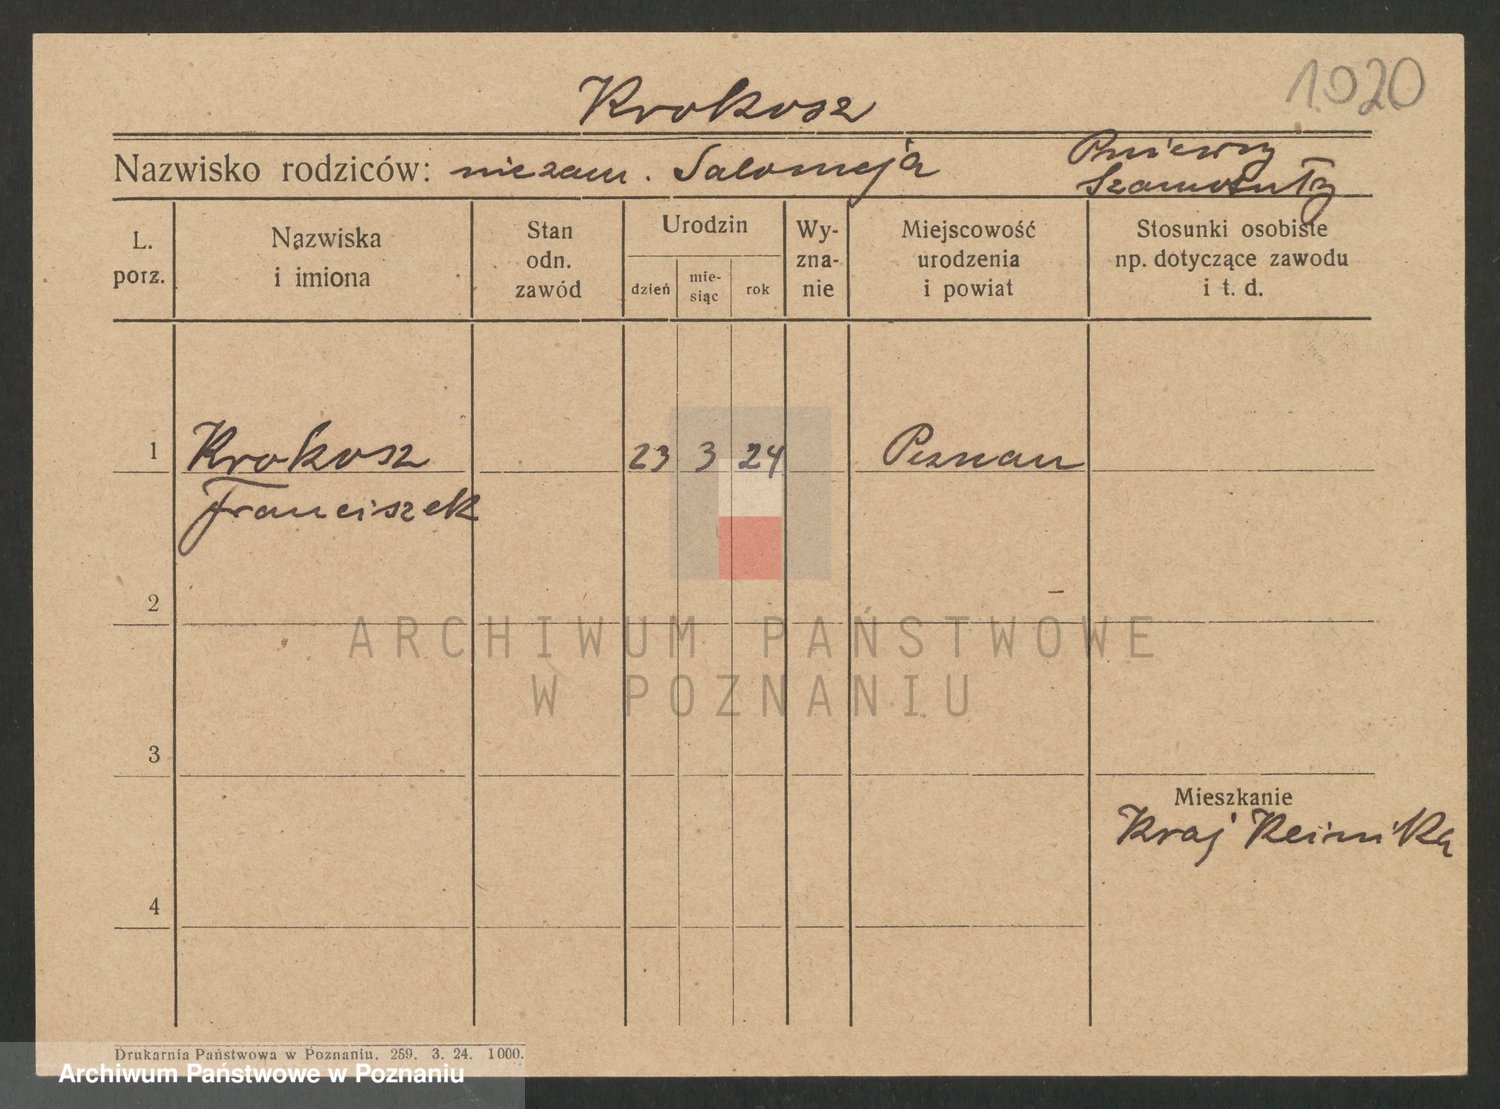 1020
Krokosz
Nazwisko rodziców: niezam. Salomeja
Pniewy
Szamotuły
L. porz.
Nazwiska i imiona
Stan odn. zawód
Urodzin
dzień
mie- siąc
rok
Wy- zna- nie
Miejscowość urodzenia i powiat
Stosunki osobiste np. dotyczące zawodu i t. d.
1 Krokosz 23 3 24 Poznań
Franciszek
2
3
Mieszkanie
Kraj Klinika
4
ARCHIWUM PAŃSTWOWE
W POZNANIU
Drukarnia Państwowa w Poznaniu. 259. 3. 24. 1000.
Archiwum Państwowe w Poznaniu